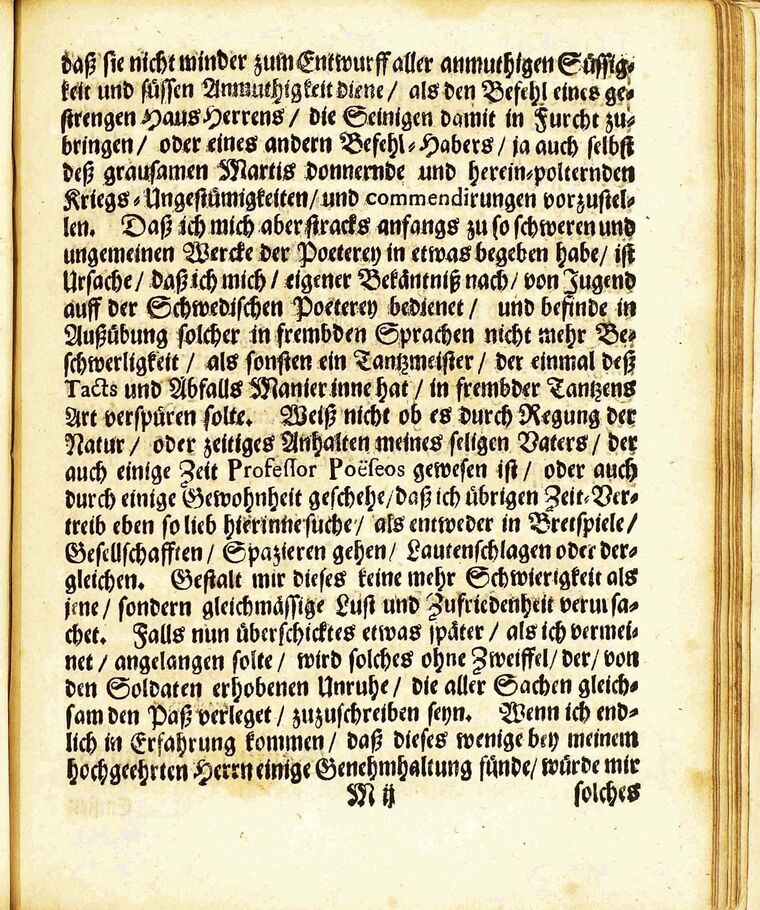 daß sie nicht minder zum Entwurff aller anmuthigen Süssig-
keit und süssen Anmuthigkeit diene / als den Befehl eines ge-
strengen Haus Herrens / die Seinigen damit in Furcht zu-
bringen / oder eines andern Befehl-Habers / ja auch selbst
deß grausamen Martis donnernde und herein-polternden
Kriegs-Ungestümigkeiten / und commendirungen vorzustel-
len. Daß ich mich aber stracks anfangs zu so schweren und
ungemeinen Wercke der Poeterey in etwas begeben habe / ist
Ursache / daß ich mich / eigener Bekäntniß nach / von Jugend
auff der Schwedischen Poeterey bedienet / und befinde in
Außübung solcher in frembden Sprachen nicht mehr Be-
schwerligkeit / als sonsten ein Tantzmeister / der einmal deß
Tacts und Abfalls Manier inne hat / in frembder Tantzens
Art verspüren solte. Weiß nicht ob es durch Regung der
Natur / oder zeitiges Anhalten meines seligen Vaters / der
auch einige Zeit Professor Poëseos gewesen ist / oder auch
durch einige Gewohnheit geschehe / daß ich übrigen Zeit-Ver-
treib eben so lieb hierinne suche / als entweder in Bretspiele /
Gesellschafften / Spazieren gehen / Lautenschlagen oder der-
gleichen. Gestalt mir dieses keine mehr Schwierigkeit als
jene / sondern gleichmässige Lust und Zufriedenheit verursa-
chet. Falls nun überschicktes etwas später / als ich vermei-
net / angelangen solte / wird solches ohne Zweiffel / der / von
den Soldaten erhobenen Unruhe / die aller Sachen gleich-
sam den Paß verleget / zuzuschreiben seyn. Wenn ich end-
lich in Erfahrung kommen / daß dieses wenige bey meinem
hochgeehrten Herrn einige Genehmhaltung fünde / würde mir
M ij solches